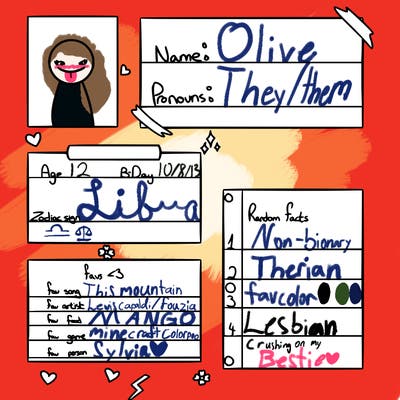 Name: Olive
Pronouns: They/them
Age 12 B-Day 10/8/13
Zodiac sign Libra
favs
fav song This mountain
fav artist Lewis capaldi/Fouzia
fav food MANGO
fav game minecraft Colorpro
fav person Sylvia
Random facts
1 Non-bionary
2 Therian
3 fav color
4 Lesbian
Crushing on my
Bestie